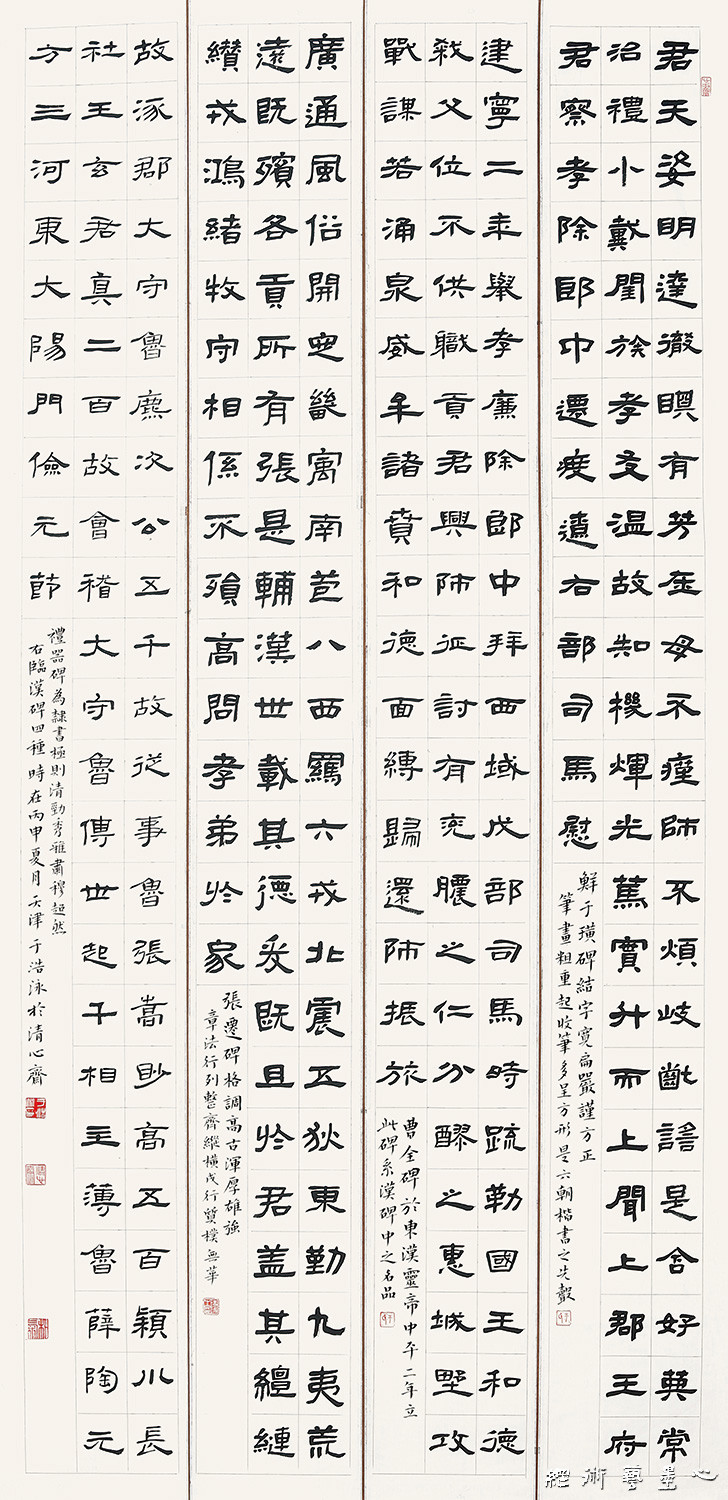 君天姿明達徹瞑有芳在母不瘽師不煩岐齔謠是含好典常
治禮小戴閨族孝友溫故知機煇光篤實升而上聞上郡王府
君察孝除郎中遷度遼右部司馬慰
鮮于璜碑結字寬扁嚴謹方正
筆畫粗重起收筆多呈方形是六朝楷書之先聲
建寧二年舉孝廉除郎中拜西域戊部司馬時疏勒國王和德
殺父位不供職貢君興師征討有兗膿之仁分醪之惠城野攻
戰謀若涌泉威牟諸賁和德面縛歸還師振旅
曹全碑於東漢靈帝中平二年立
此碑系漢碑中之名品
廣通風俗開定畿寓南苞八西羈六戎北震五狄東勤九夷荒
遠既殯各貢所有張是輔漢世載其德爰既且於君盖其纏縺
纘戎鴻緒牧守相係不殞高問孝弟於家
張遷碑格調高古渾厚雄強
章法行列整齊縱橫成行質樸無華
故涿郡大守魯麃次公五千故從事魯張嵩眇高五百潁川長
社王玄君真二百故會稽大守魯傅世起千相主薄魯薛陶元
方三河東大陽門儉元節
禮器碑為隸書極則清勁秀雅肅穆超然
右臨漢碑四種時在丙申夏月天津于浩泳於清心齋